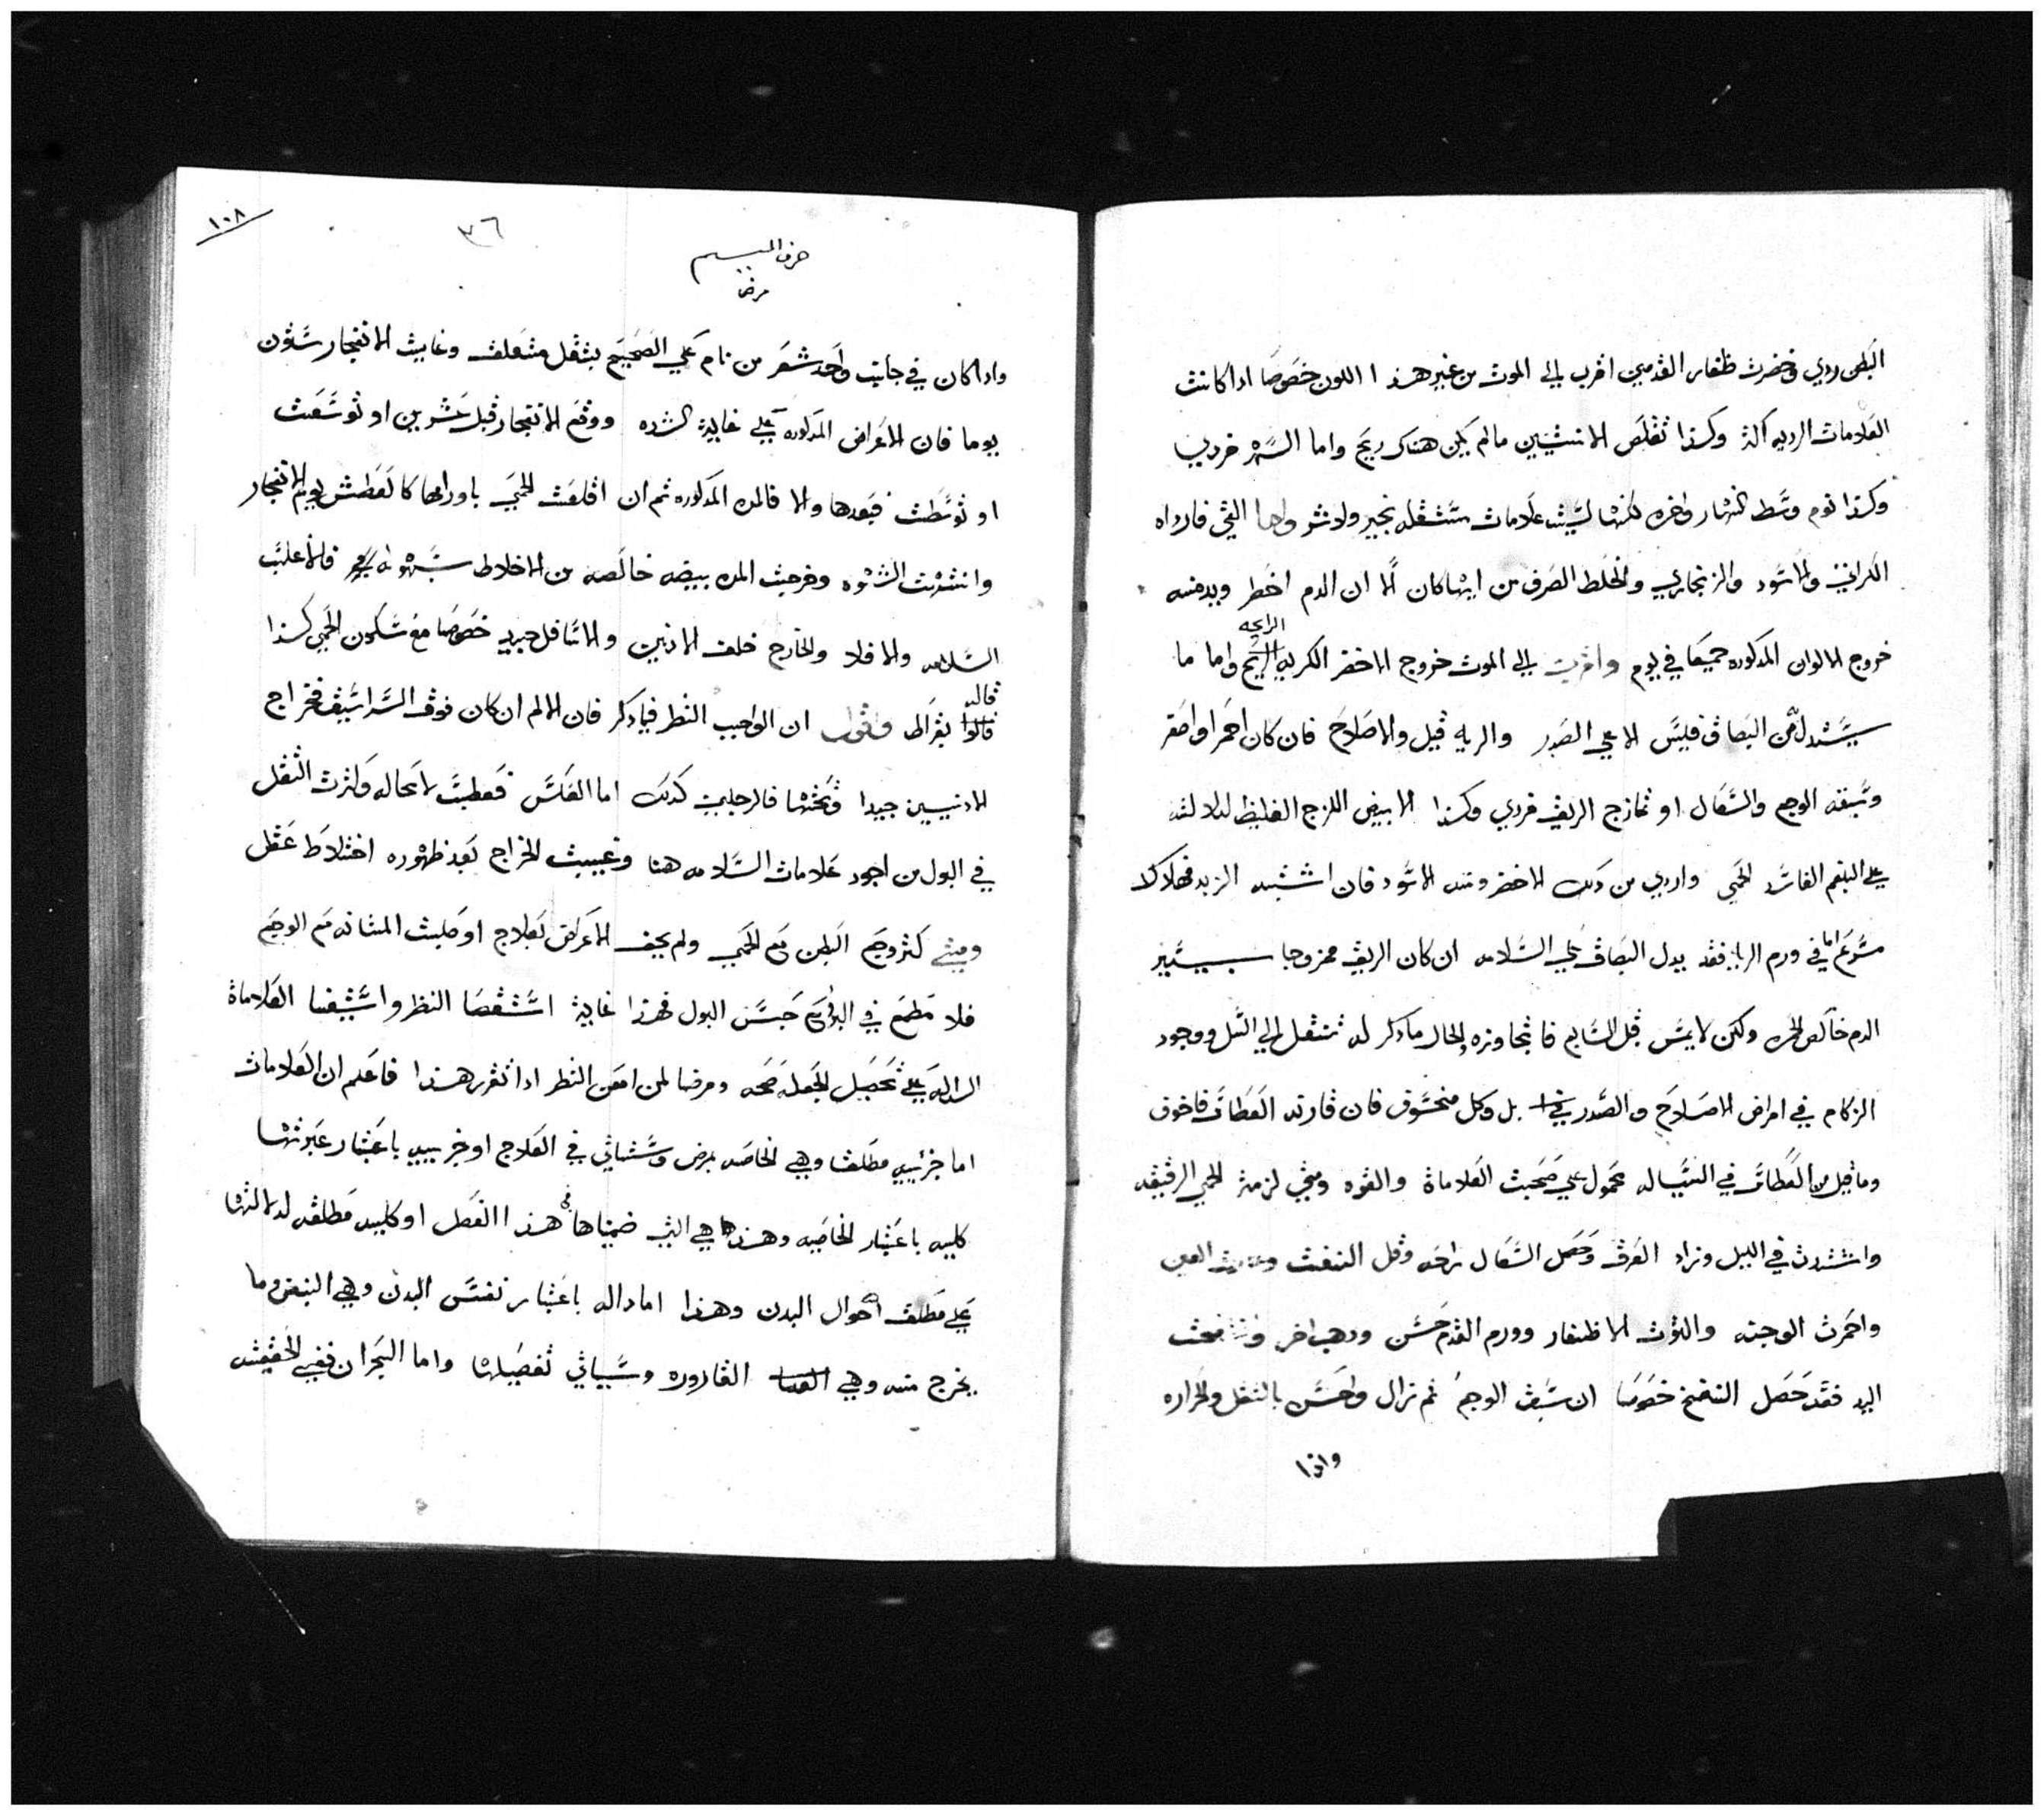 البطن ردي وخضرت ظفار القدمين اقرب الي الموت من غير هذا اللون خصوصا اذا كانت
العلامات الرديه اكثر وكذا تقلص الانثيين مالم يكن هناك ريح واما السهر فردي
وكذا نوم وسط النهار واخره لكنها ليست علامات مستقله بخير ولا شر واما القي فارداه
الكراثي والاسود والزنجاري والخلط الصرف من ايها كان الا ان الدم اخطر وبعده
خروج الالوان المذكوره جميعا في يوم واقرب الي الموت خروج الاخضر الكريه الرايحه واما ما
يستدل من البصاق فليس الا علي الصدر والريه قيل والاضلاع فان كان احمر او اصفر
وسبقه الوجع والسعال او تمازج الريق فردي وكذا الابيض اللزج الغليظ لدلالته
علي البلغم الفاسد الحمي واردي من ذلك الاخضر ومنه الاسود فان اشتبه الزبد فهلاك لا
سرع اما في ورم الرايه فقد يدل البصاق علي السلامه ان كان الريق ممزوجا بيسير
الدم خالص الحمره ولكن لا يمس قبل السابع فاتجاوزه والحال ما ذكر له تنتقل الي السل ووجود
الزكام في امراض الاضلاع والصدر بل وكل مخوف فان قارنه العطاس فاخوف
وما قيل من العطاس في القتاله محمول علي صحبت العلاماة والقوه ومتي لزمت الحمي الرقيقه
واشتدت في الليل وزاد العرق وحصل السعال راحه وقل النفث وغارت العين
واحمرت الوجنه والتوت الاظفار وورم القدم حسن وذهب اخر وانتفخت
اليد فقد حصل التفتح خصوصا ان سبق الوجع ثم نزال واحس بالثقل والحراره
واذا
١٠٨
٣٦
حرف الميم
مرض
واذا كان في جانب واحد شعر من نام علي الصحيح بثقل متعلق وغايت الانفجار ستون
يوما فان الاعراض المذكوره علي غاية الشده ووقع الانفجار قبل عشرين او توسعت
او توسطت فبعدها والا فالمده المذكوره ثم ان اقلعت الحمي باوراها كالعطش يوم الانفجار
وانتشرت الشهوه وخرجت المده بيضه خالصه من الاخلاط بسهوله فالاغلب
السلامه والا فلا والخارج خلف الاذنين والاسافل جيد خصوصا مع سكون الحمي كذا
قاله بقراط واقول ان الواجب النظر فيما ذكر فان الالم ان كان فوق الشراسيف فخراج
الاذنيين جيدا وتحتها فالرجلين كذلك اما العكس فعطب لا محاله وكثرت الثقل
في البول من اجود علامات السلامه هنا وغيبت الخراج بعد ظهوره اختلاط عقل
ومتي كثر وجع البطن مع الحمي ولم يخف الاعراض بعلاج او صلبت المثانه مع الوجع
فلا مطمع في البرؤ مع حبس البول فهذا غاية استقصا النظر واستيفا العلاماة
الداله علي تحصل الجمله صحه ومرضا لمن امعن النظر اذا تقرر هذا فاعلم ان العلامات
اما جزئييه مطلقا وهي الخاصه بمرض وستاتي في العلاج او جزييه باعتبار عبرتها
كليه باعتبار الخاصيه وهذه هي التي ضمناها في هذا الفصل او كليه مطلقه لدلالتها
علي مطلق احوال البدن وهذا اما داله باعتبار نفس البدن وهي النبض وما
يخرج منه وهي القاروره وسياتي تفصيلها واما البحران ففي الحقيقت